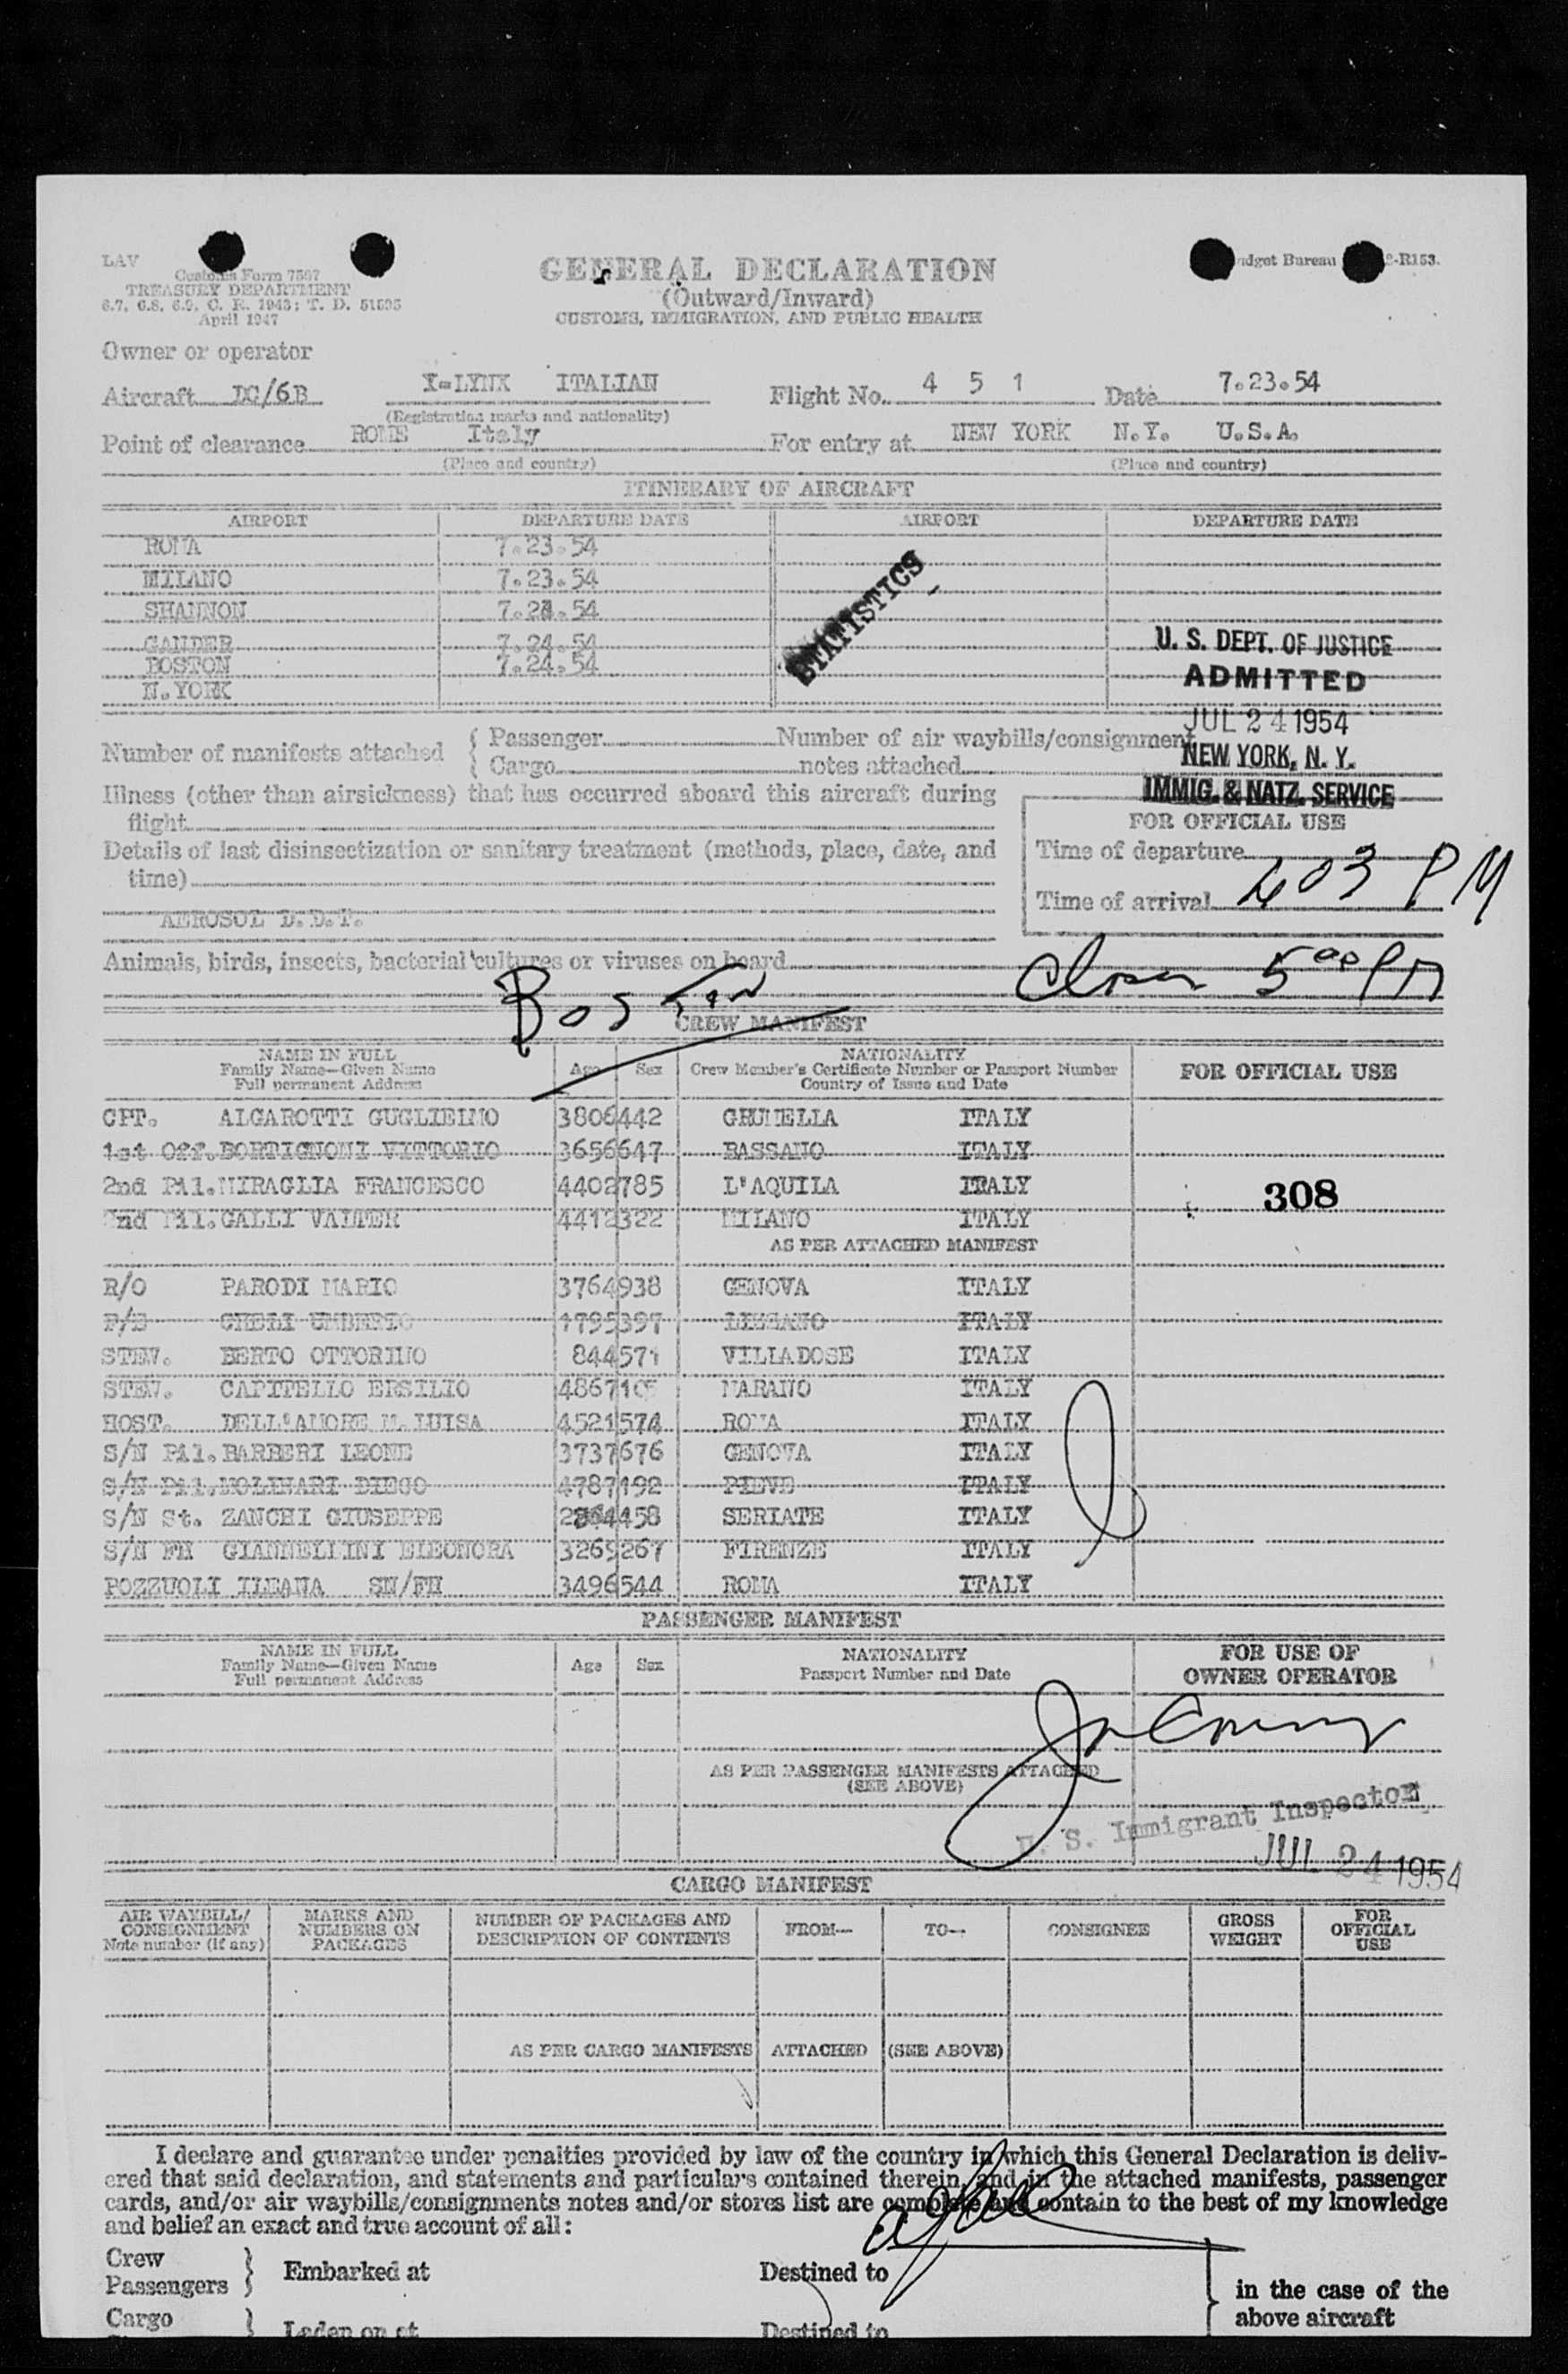 LAV
Customs Form 7507
TREASURY DEPARTMENT
6.7, 6.8, 6.9, C. R. 1943; T. D. 51595
April 1947
GENERAL DECLARATION
(Outward/Inward)
CUSTOMS, IMMIGRATION, AND PUBLIC HEALTH
udget Bureau -R153.
Owner or operator
Aircraft DC/6B I-LYNX ITALIAN Flight No. 4 5 1 Date 7.23.54
(Registration marks and nationality)
Point of clearance ROME Italy For entry at NEW YORK N.Y. U.S.A.
(Place and country) (Place and country)
ITINERARY OF AIRCRAFT
AIRPORT DEPARTURE DATE AIRPORT DEPARTURE DATE
ROMA 7.23.54
MILANO 7.23.54
SHANNON 7.24.54
GANDER 7.24.54
BOSTON 7.24.54
N.YORK
STATISTICS
U. S. DEPT. OF JUSTICE
ADMITTED
JUL 24 1954
NEW YORK, N. Y.
IMMIG. & NATZ. SERVICE
Number of manifests attached { Passenger Number of air waybills/consignment
{ Cargo notes attached
Illness (other than airsickness) that has occurred aboard this aircraft during
flight
FOR OFFICIAL USE
Details of last disinsectization or sanitary treatment (methods, place, date, and
time)
Time of departure
Time of arrival 403 PM
AEROSOL D.D.T.
Animals, birds, insects, bacterial cultures or viruses on board
Boston
500 PM
CREW MANIFEST
NAME IN FULL
Family Name—Given Name
Full permanent Address
Age Sex
NATIONALITY
Crew Member's Certificate Number or Passport Number
Country of Issue and Date
FOR OFFICIAL USE
CPT. ALGAROTTI GUGLIELMO 3806442 GRUMELLA ITALY
1st Off. BORTIGNONI VITTORIO 3656647 BASSANO ITALY
2nd Pil. MIRAGLIA FRANCESCO 4402785 L'AQUILA ITALY
308
2nd Pil. GALLI VALTER 4412322 MILANO ITALY
AS PER ATTACHED MANIFEST
R/O PARODI MARIO 3764938 GENOVA ITALY
F/E CHELI UMBERTO 1795397 LIZZANO ITALY
STEW. BERTO OTTORINO 844571 VILLADOSE ITALY
STEW. CAPITELLO ERSILIO MARANO ITALY
HOST. DELL'AMORE M. LUISA 4521574 ROMA ITALY
S/N Pil. BARBERI LEONE 3737676 GENOVA ITALY
S/N Pil. MOLINARI DIEGO 4787192 PIEVE ITALY
S/N St. ZANCHI GIUSEPPE SERIATE ITALY
S/N FH GIANNELLINI ELEONORA 3265267 FIRENZE ITALY
POZZUOLI ILEANA SN/FH 3496544 ROMA ITALY
PASSENGER MANIFEST
NAME IN FULL
Family Name—Given Name
Full permanent Address
Age Sex
NATIONALITY
Passport Number and Date
FOR USE OF
OWNER OPERATOR
AS PER PASSENGER MANIFESTS ATTACHED
(SEE ABOVE)
U. S. Immigrant Inspector
JUL 24 1954
CARGO MANIFEST
AIR WAYBILL/
CONSIGNMENT
Note number (if any)
MARKS AND
NUMBERS ON
PACKAGES
NUMBER OF PACKAGES AND
DESCRIPTION OF CONTENTS
FROM—
TO—
CONSIGNEE
GROSS
WEIGHT
FOR
OFFICIAL
USE
AS PER CARGO MANIFESTS ATTACHED (SEE ABOVE)
I declare and guarantee under penalties provided by law of the country in which this General Declaration is deliv-
ered that said declaration, and statements and particulars contained therein, and in the attached manifests, passenger
cards, and/or air waybills/consignments notes and/or stores list are complete and contain to the best of my knowledge
and belief an exact and true account of all:
Crew
Passengers } Embarked at Destined to
in the case of the
above aircraft
Cargo } Laden on at Destined to